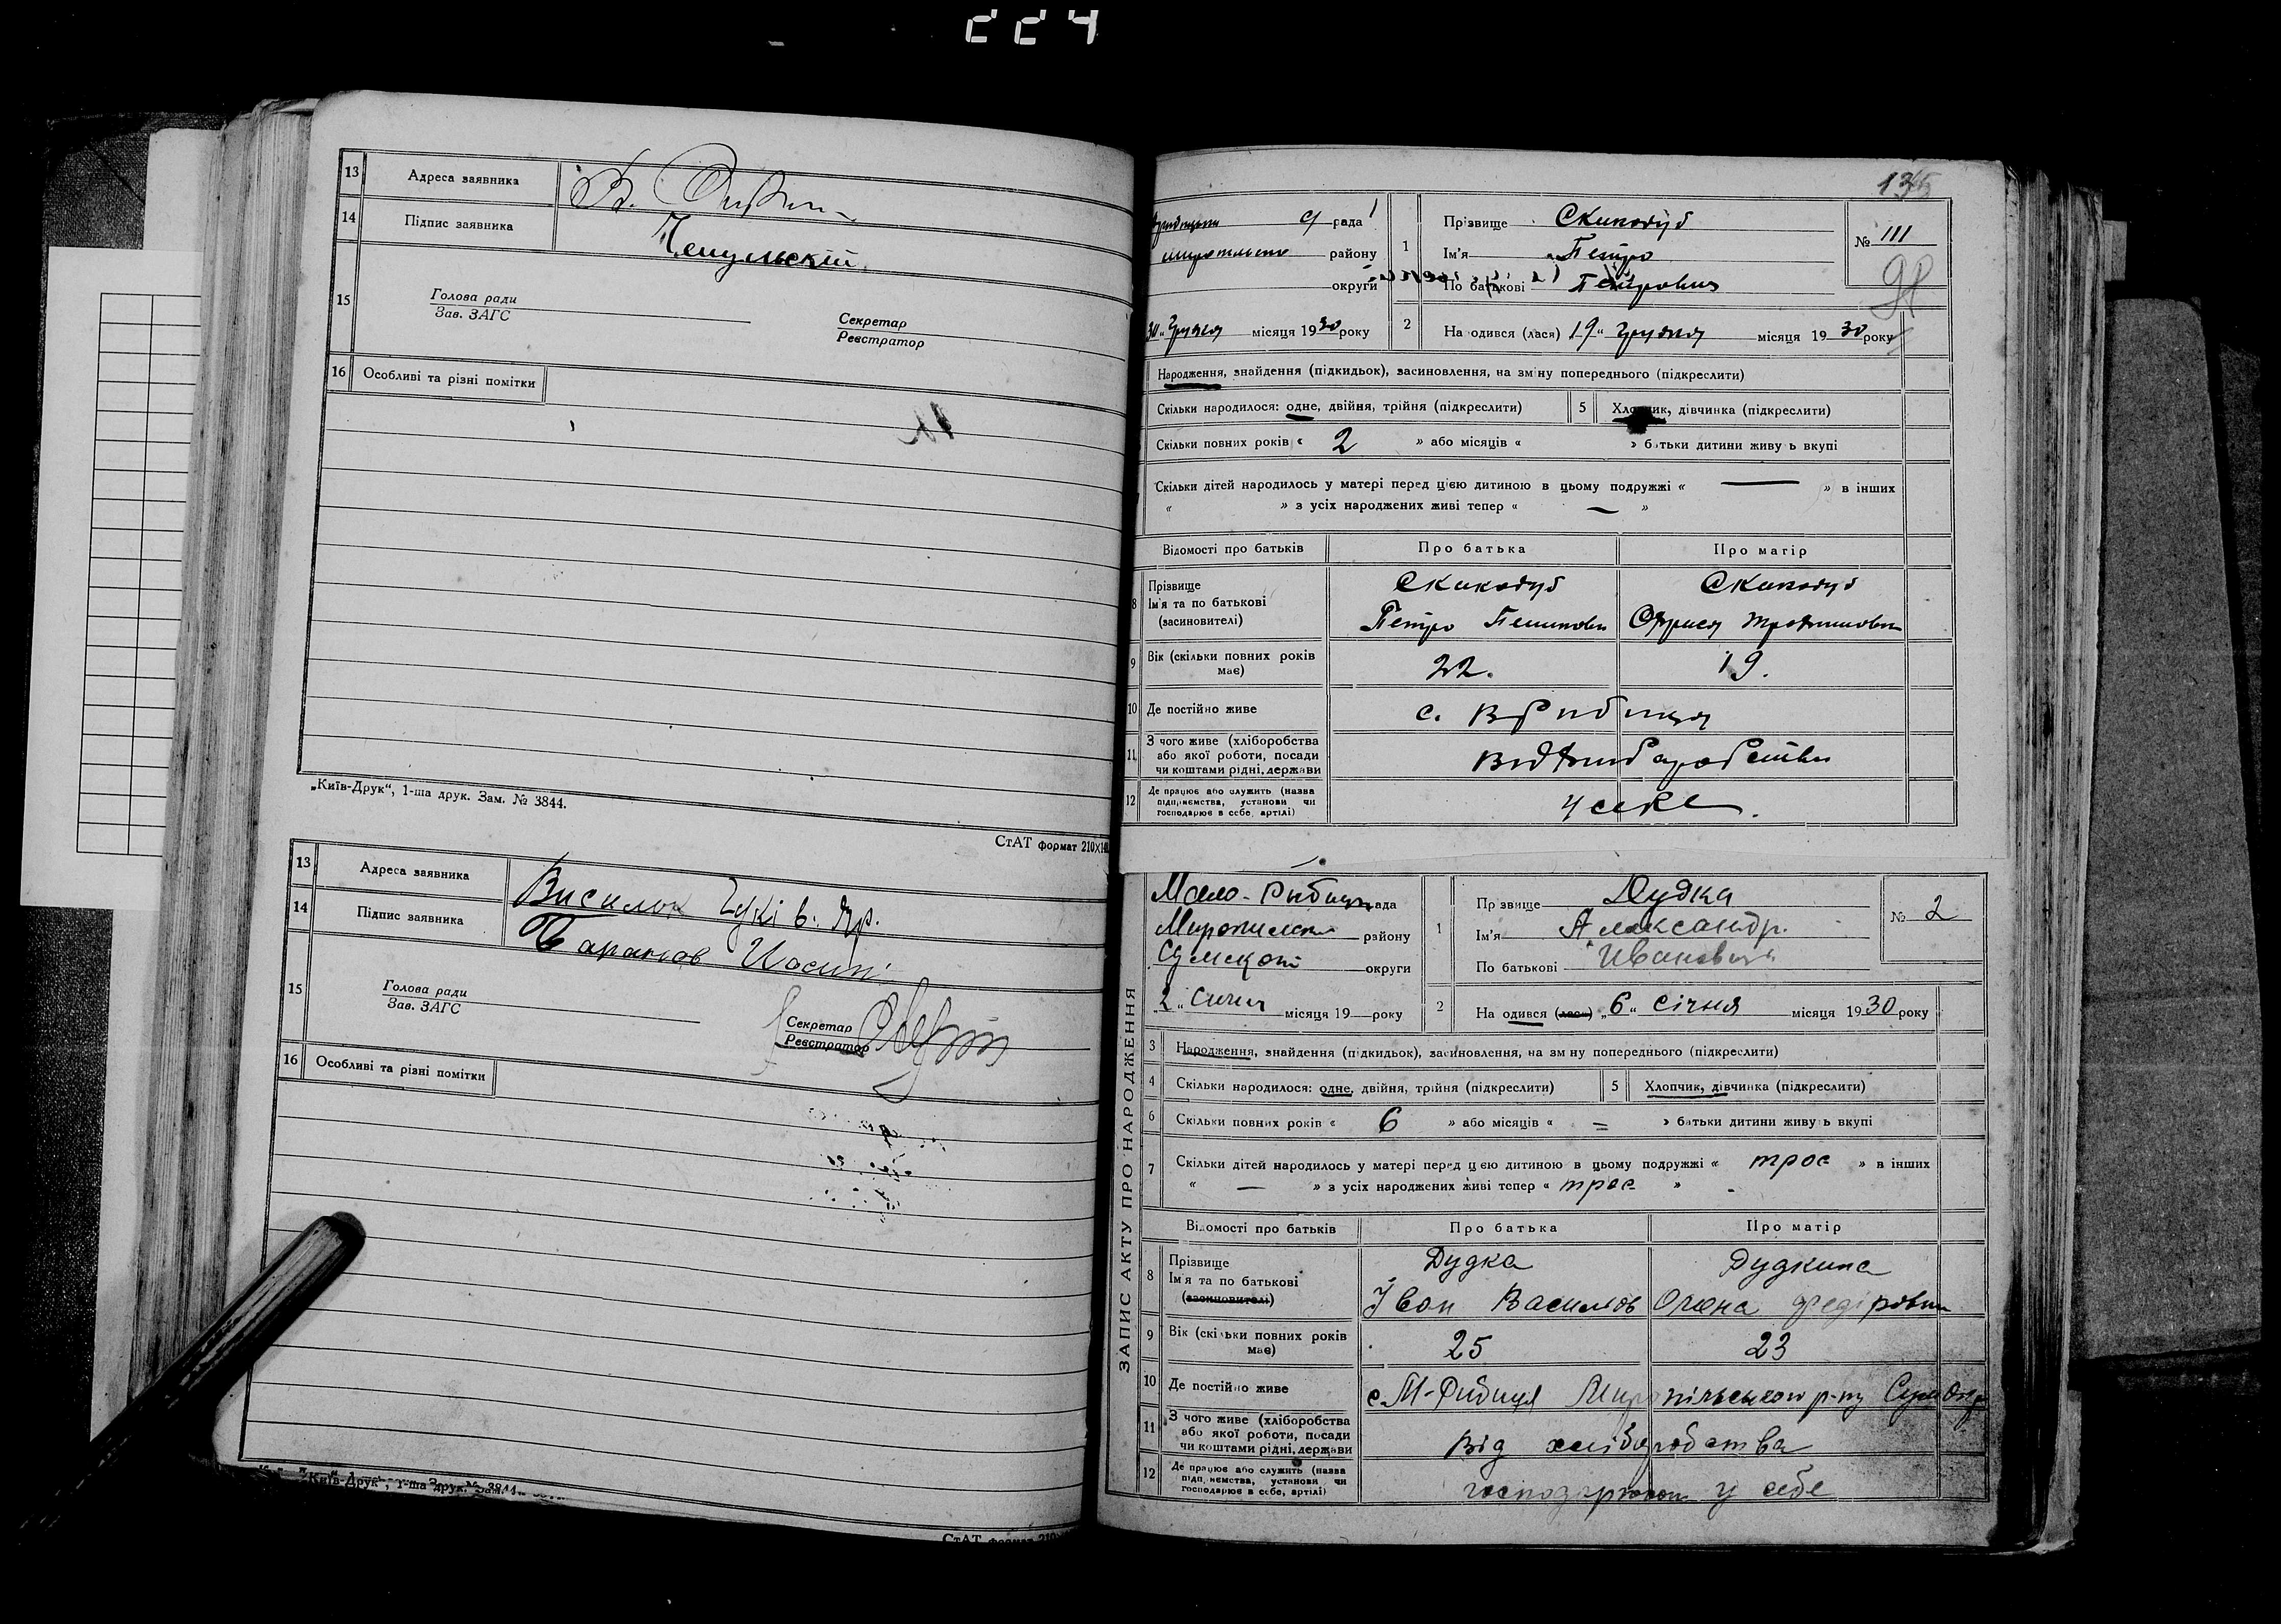 224
13 Адреса заявника В.
14 Підпис заявника
15 Голова ради
Зав. ЗАГС
Секретар
Реєстратор
16 Особливі та різні помітки
„Київ-Друк“, 1-ша друк. Зам. № 3844.
СтАТ формат 210×1
13 Адреса заявника Висилок
14 Підпис заявника Баранов
15 Голова ради
Зав. ЗАГС
Секретар
Реєстратор
16 Особливі та різні помітки
„Київ-Друк“, 1-ша друк. Зам. № 3844.
135
рада
району
округи
місяця 1930 року
1 Прізвище Скиподуб
Ім'я Петро
По батькові Петрович
№ 111
2 На одився (лася) „19“ грудня місяця 1930 року
Народження, знайдення (підкидьок), засиновлення, на зміну попереднього (підкреслити)
Скільки народилося: одне, двійня, трійня (підкреслити) 5 Хлопчик, дівчинка (підкреслити)
Скільки повних років « 2 » або місяців « » батьки дитини живу ь вкупі
Скільки дітей народилось у матері перед цією дитиною в цьому подружжі « — » в інших
« » з усіх народжених живі тепер « — »
Відомості про батьків Про батька Про матір
8 Прізвище Скиподуб Скиподуб
Ім'я та по батькові
(засновителі) Петро
9 Вік (скільки повних років має) 22. 19.
10 Де постійно живе с.
11 З чого живе (хліборобства
або якої роботи, посади
чи коштами рідні, держави
12 Де працює або служить (назва
підприємства, установи чи
господарює в себе, артілі) у себе.
ЗАПИС АКТУ ПРО НАРОДЖЕННЯ
Мало-Рибицьк рада
району
округи
2 „ місяця 19 — року
1 Пр звище Дудка
Ім'я Александр.
По батькові Иванович
№ 2
2 На одився (лася) „6“ січня місяця 1930 року
3 Народження, знайдення (підкидьок), засиновлення, на зм ну попереднього (підкреслити)
4 Скільки народилося: одне, двійня, трійня (підкреслити) 5 Хлопчик, дівчинка (підкреслити)
6 Скільки повних років « 6 » або місяців « = » батьки дитини живу ь вкупі
7 Скільки дітей народилось у матері перед цією дитиною в цьому подружжі « трое » в інших
« — » з усіх народжених живі тепер « трое »
Відомості про батьків Про батька Про матір
8 Прізвище Дудка Дудкина
Ім'я та по батькові
(засновителі) Іван Василев Олена Федіровна
9 Вік (скільки повних років має) 25 23
10 Де постійно живе с. М-Рибиця Миропільського р-ну
11 З чого живе (хліборобства
або якої роботи, посади
чи коштами рідні, держави Від хліборобства
12 Де працює або служить (назва
підприємства, установи чи
господарює в себе, артілі) у себе